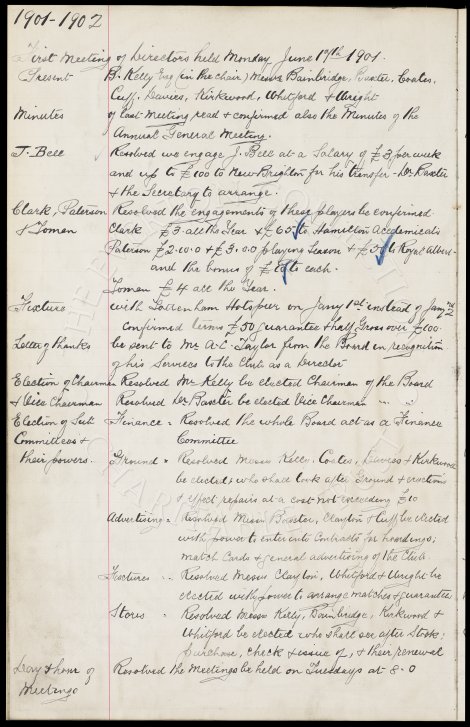 1901-1902
First Meeting of Directors held Monday June 17th 1901.
Present B. Kelly Esq (in the chair) Messrs Bainbridge, Baxter, Coates,
Cuff, Davies, Kirkwood, Whitford & Wright
Minutes of last Meeting read & confirmed also the Minutes of the
Annual General Meeting.
J. Bell Resolved we engage J. Bell at a Salary of £3 per week
and up to £100 to New Brighton for his transfer - Dr Baxter
& the Secretary to arrange.
Clark, Paterson Resolved the engagements of these players be confirmed
& Toman Clark £3 all the Year & £65 to Hamilton Academicals
Paterson £2.10.0 & £3.0.0 playing Season & to Royal Albert
and the bonus of £10 to each.
Toman £4 all the Year.
Fixture with Tottenham Hotspur on Jany 1st instead of Jany 2nd
confirmed terms £50 guarantee & half Gross over £100
Letter of thanks be sent to Mr A.C. Taylor from the Board in recognition
of his Services to the Club as a Director
Election of Chairman Resolved Mr Kelly be elected Chairman of the Board
& Vice Chairman Resolved Dr Baxter be elected Vice Chairman " "
Election of Sub Finance = Resolved the whole Board act as a Finance
Committees & Committee
their powers. Ground = Resolved Messrs Kelly, Coates, Davies & Kirkwood
be elected, who shall look after Ground & erections
& effect repairs at a cost not exceeding £10
Advertising = Resolved Messrs Baxter, Clayton & Cuff be elected
with power to enter into Contracts for hoardings,
match Cards & general advertising of the Club
Fixtures .. Resolved Messrs Clayton, Whitford & Wright be
elected with power to arrange matches & guarantees
Stores .. Resolved Messrs Kelly, Bainbridge, Kirkwood &
Whitford be elected who shall see after Stock:
purchase, check & issue of, & their renewal
Day & hour of Resolved the Meetings be held on Tuesdays at 8-0
Meetings